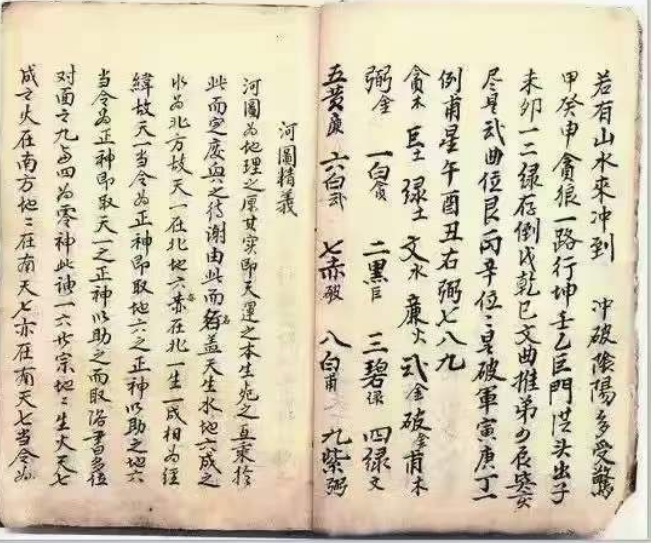 若有山水來冲到 冲破陰陽多受驚
甲癸申貪狼一路行坤壬乙巨門洪头出子
未卯一二緑存倒戊乾巳文曲推第四辰巽亥
尽是武曲位艮丙辛位位是破軍寅庚丁一
例甫星午酉丑右弼七八九
貪木 巨土 緑土 文水 廉火 武金 破金 甫木
弼金 一白貪 二黒巨 三碧禄 四緑文
五黄廉 六白武 七赤破 八白甫 九紫弼
河圖精義
河圖為地理之原其實即天運之本生死之互乘於
此而定廢興之待謝由此而名盖天生水地六成之
水為北方故天一在北地六亦在北一生一成相為經
緯故天一當令為正神即取地六之正神以助之地六
當令為正神即取天一之正神以助之而取洛書多位
对面之九与四為零神此謂一六共宗地二生火天七
成之火在南方地二在南天七亦在南天七當令為